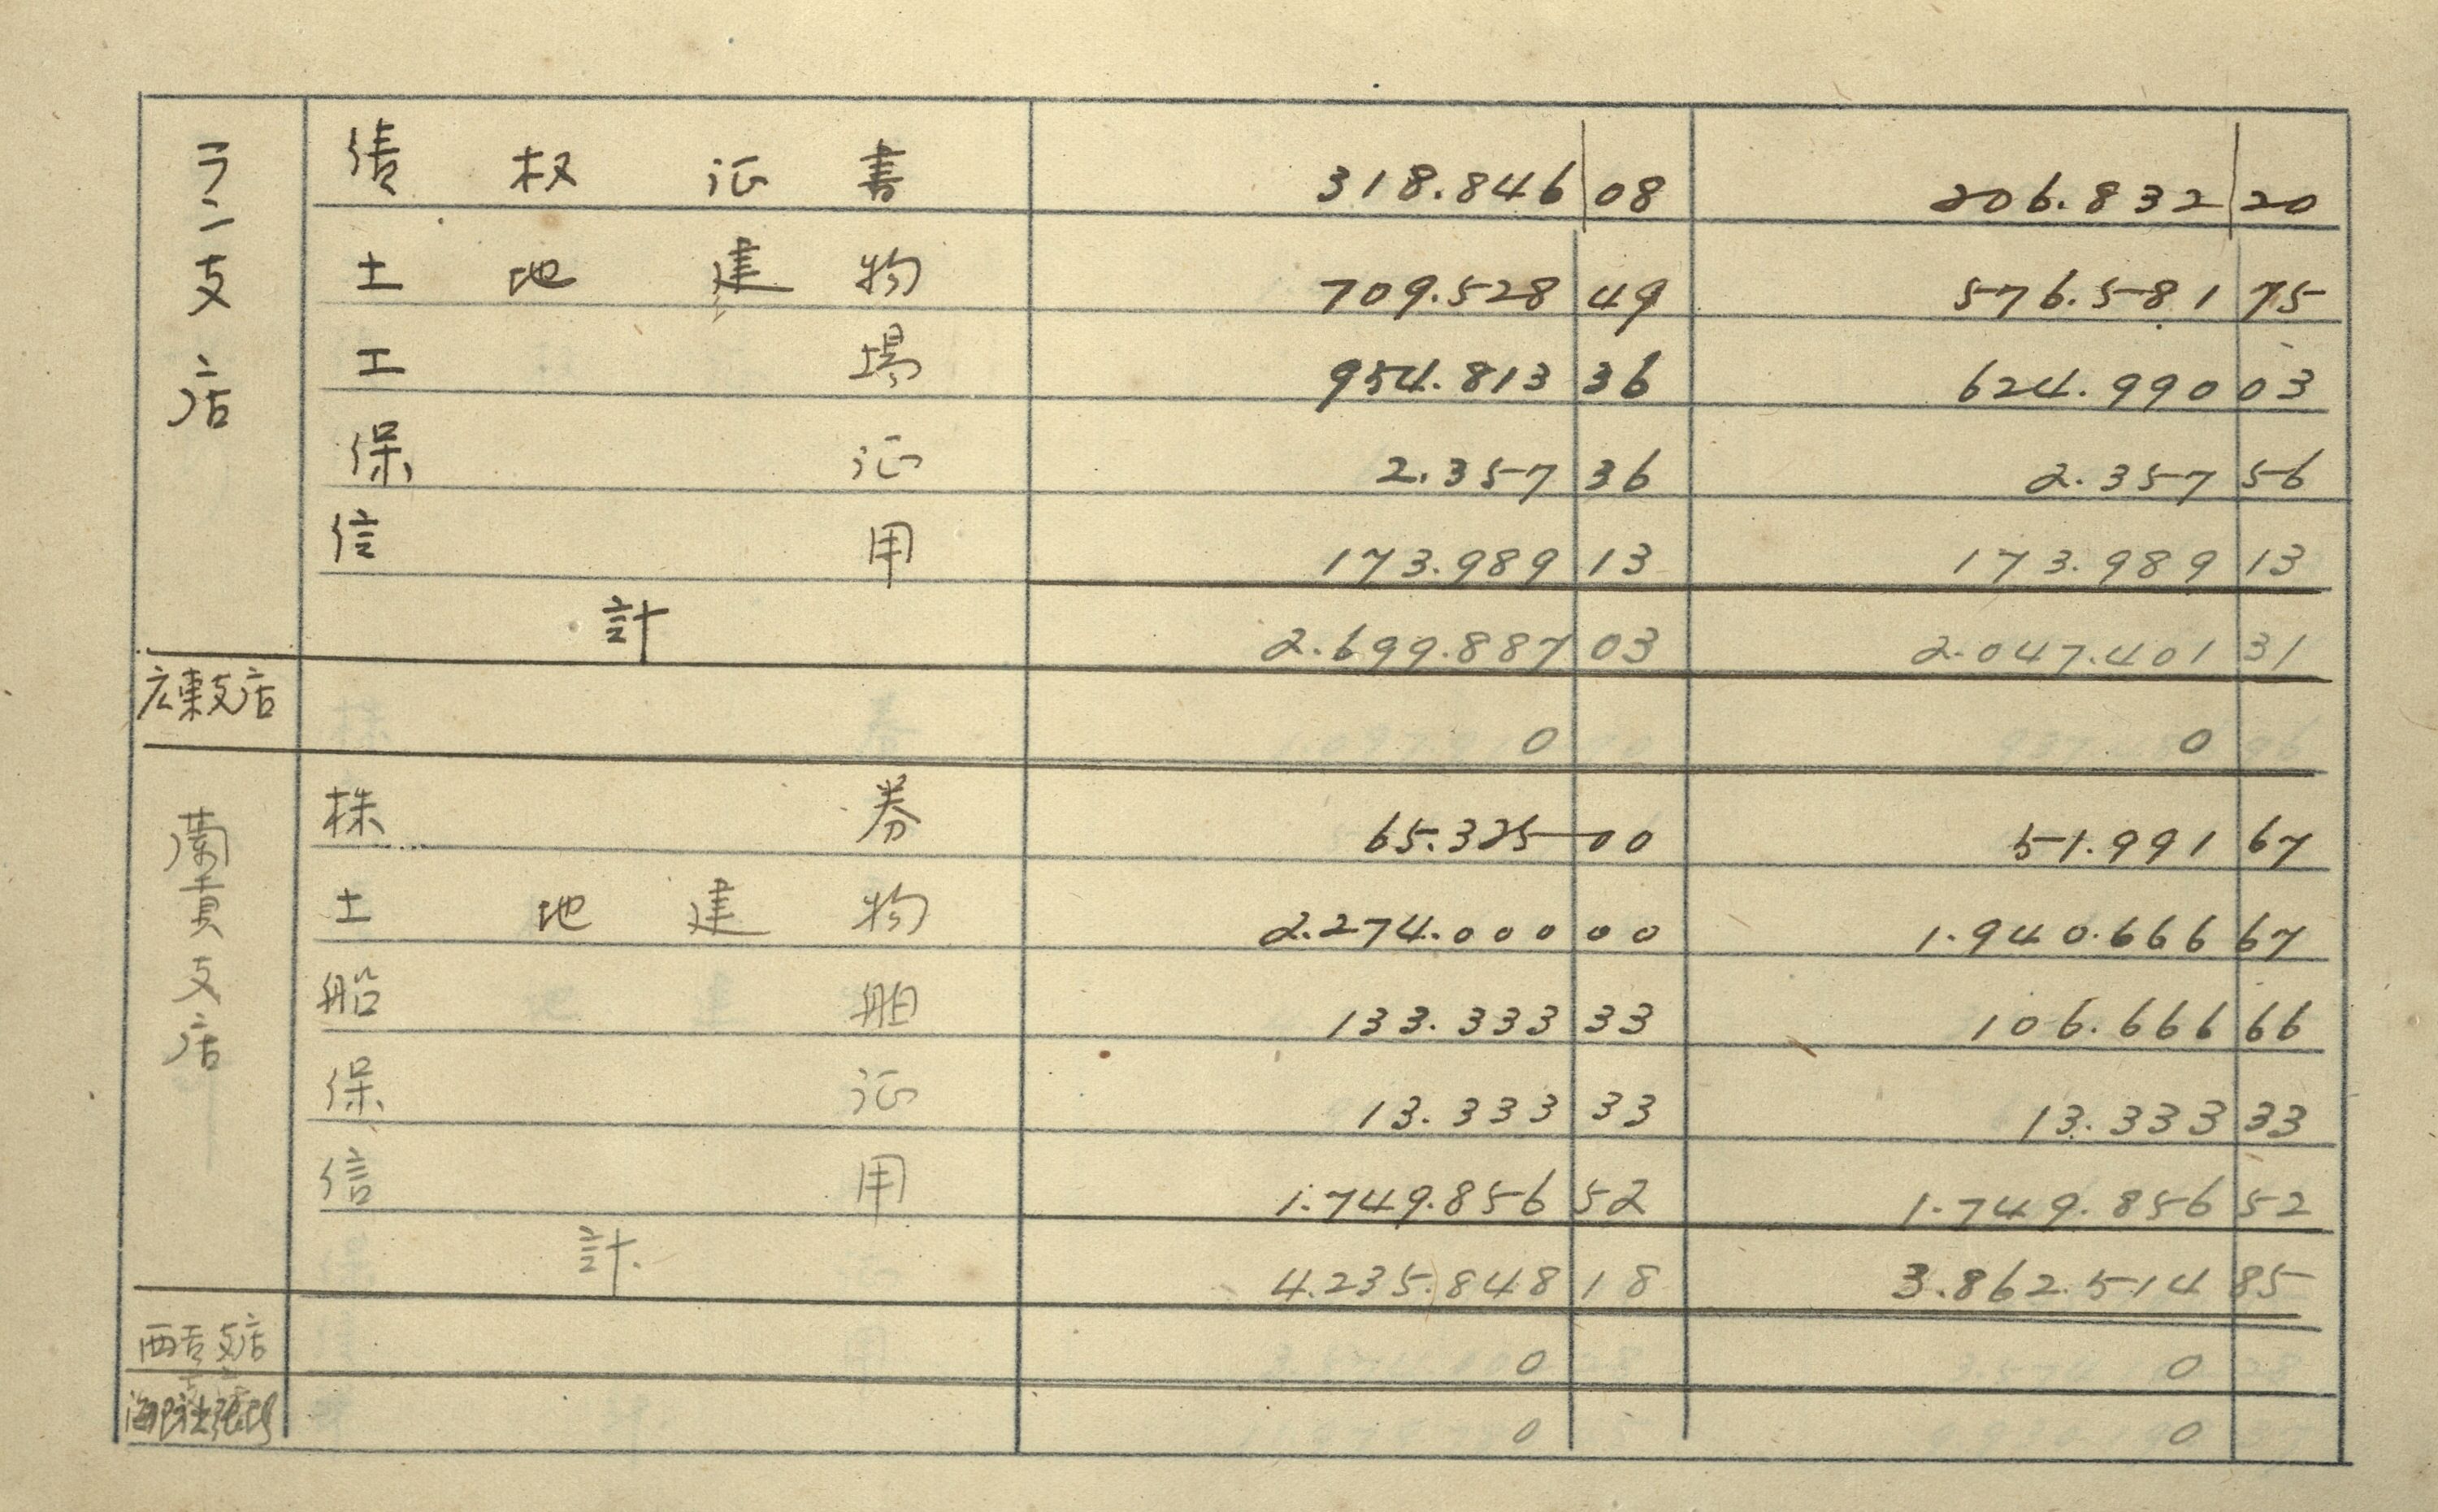 ラニ支店 債権証書 318.846 08 206.832 20
土地建物 709.528 49 576.581 75
工場 954.813 36 624.990 03
保証 2.357 36 2.357 56
信用 173.989 13 173.989 13
計 2.699.887 03 2.047.401 31
広東支店 0 0
蘭貢支店 株券 65.325 00 51.991 67
土地建物 2.274.000 00 1.940.666 67
船舶 133.333 33 106.666 66
保証 13.333 33 13.333 33
信用 1.749.856 52 1.749.856 52
計 4.235.848 18 3.862.514 85
西貢支店 0 0
0 0